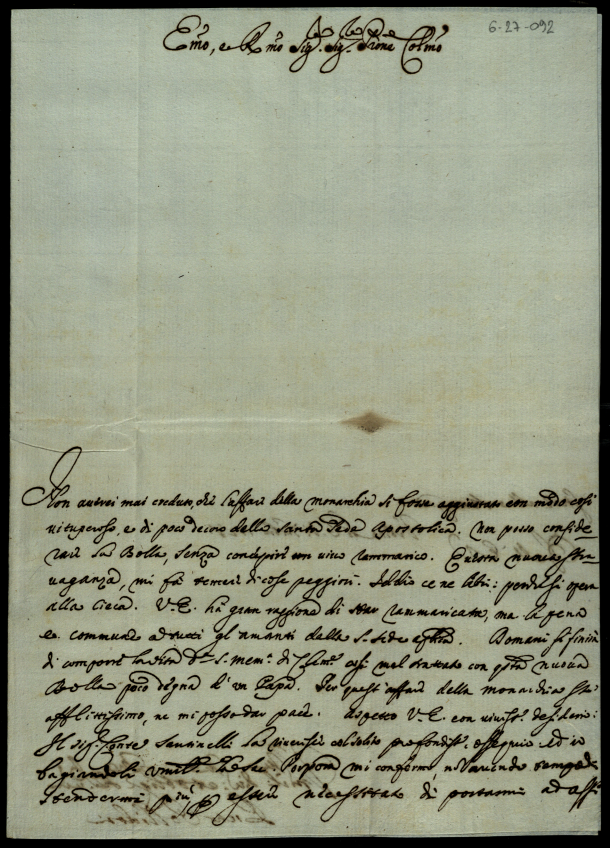 6-27-092
Emo, e Rmo Sig. Sig. Prone Colmo
Non avrei mai creduto, che l'affare della monarchia si fosse aggiustato con modo così
vituperoso, e di poco decoro della Santa Sede Apostolica. Non posso conside=
rare la Bolla, senza concepire un vivo rammarico. nuova stra=
vaganza, mi fà temere di cose peggiori. Iddio ce ne liberi: perche si opera
alla cieca. V.E. ha gran raggione di star rammaricata, ma la pena
è commune a tutti gl'amanti della S. Sede Domani si finirà
di la S. mem. di così mal trattato con nuova
Bolla poco degna d'un Papa. Per quest'affare della monarchia sto
afflittissimo, ne mi posso dar pace. Aspetto V.E. con viviss. desiderio:
Il Sig. Conte Santinelli la riverisce col solito profondiss. ossequio ed io
bagiandoli umilt. la Porpora mi confermo, non avendo tempo di
stendermi più p essere necessitato di portarmi ad